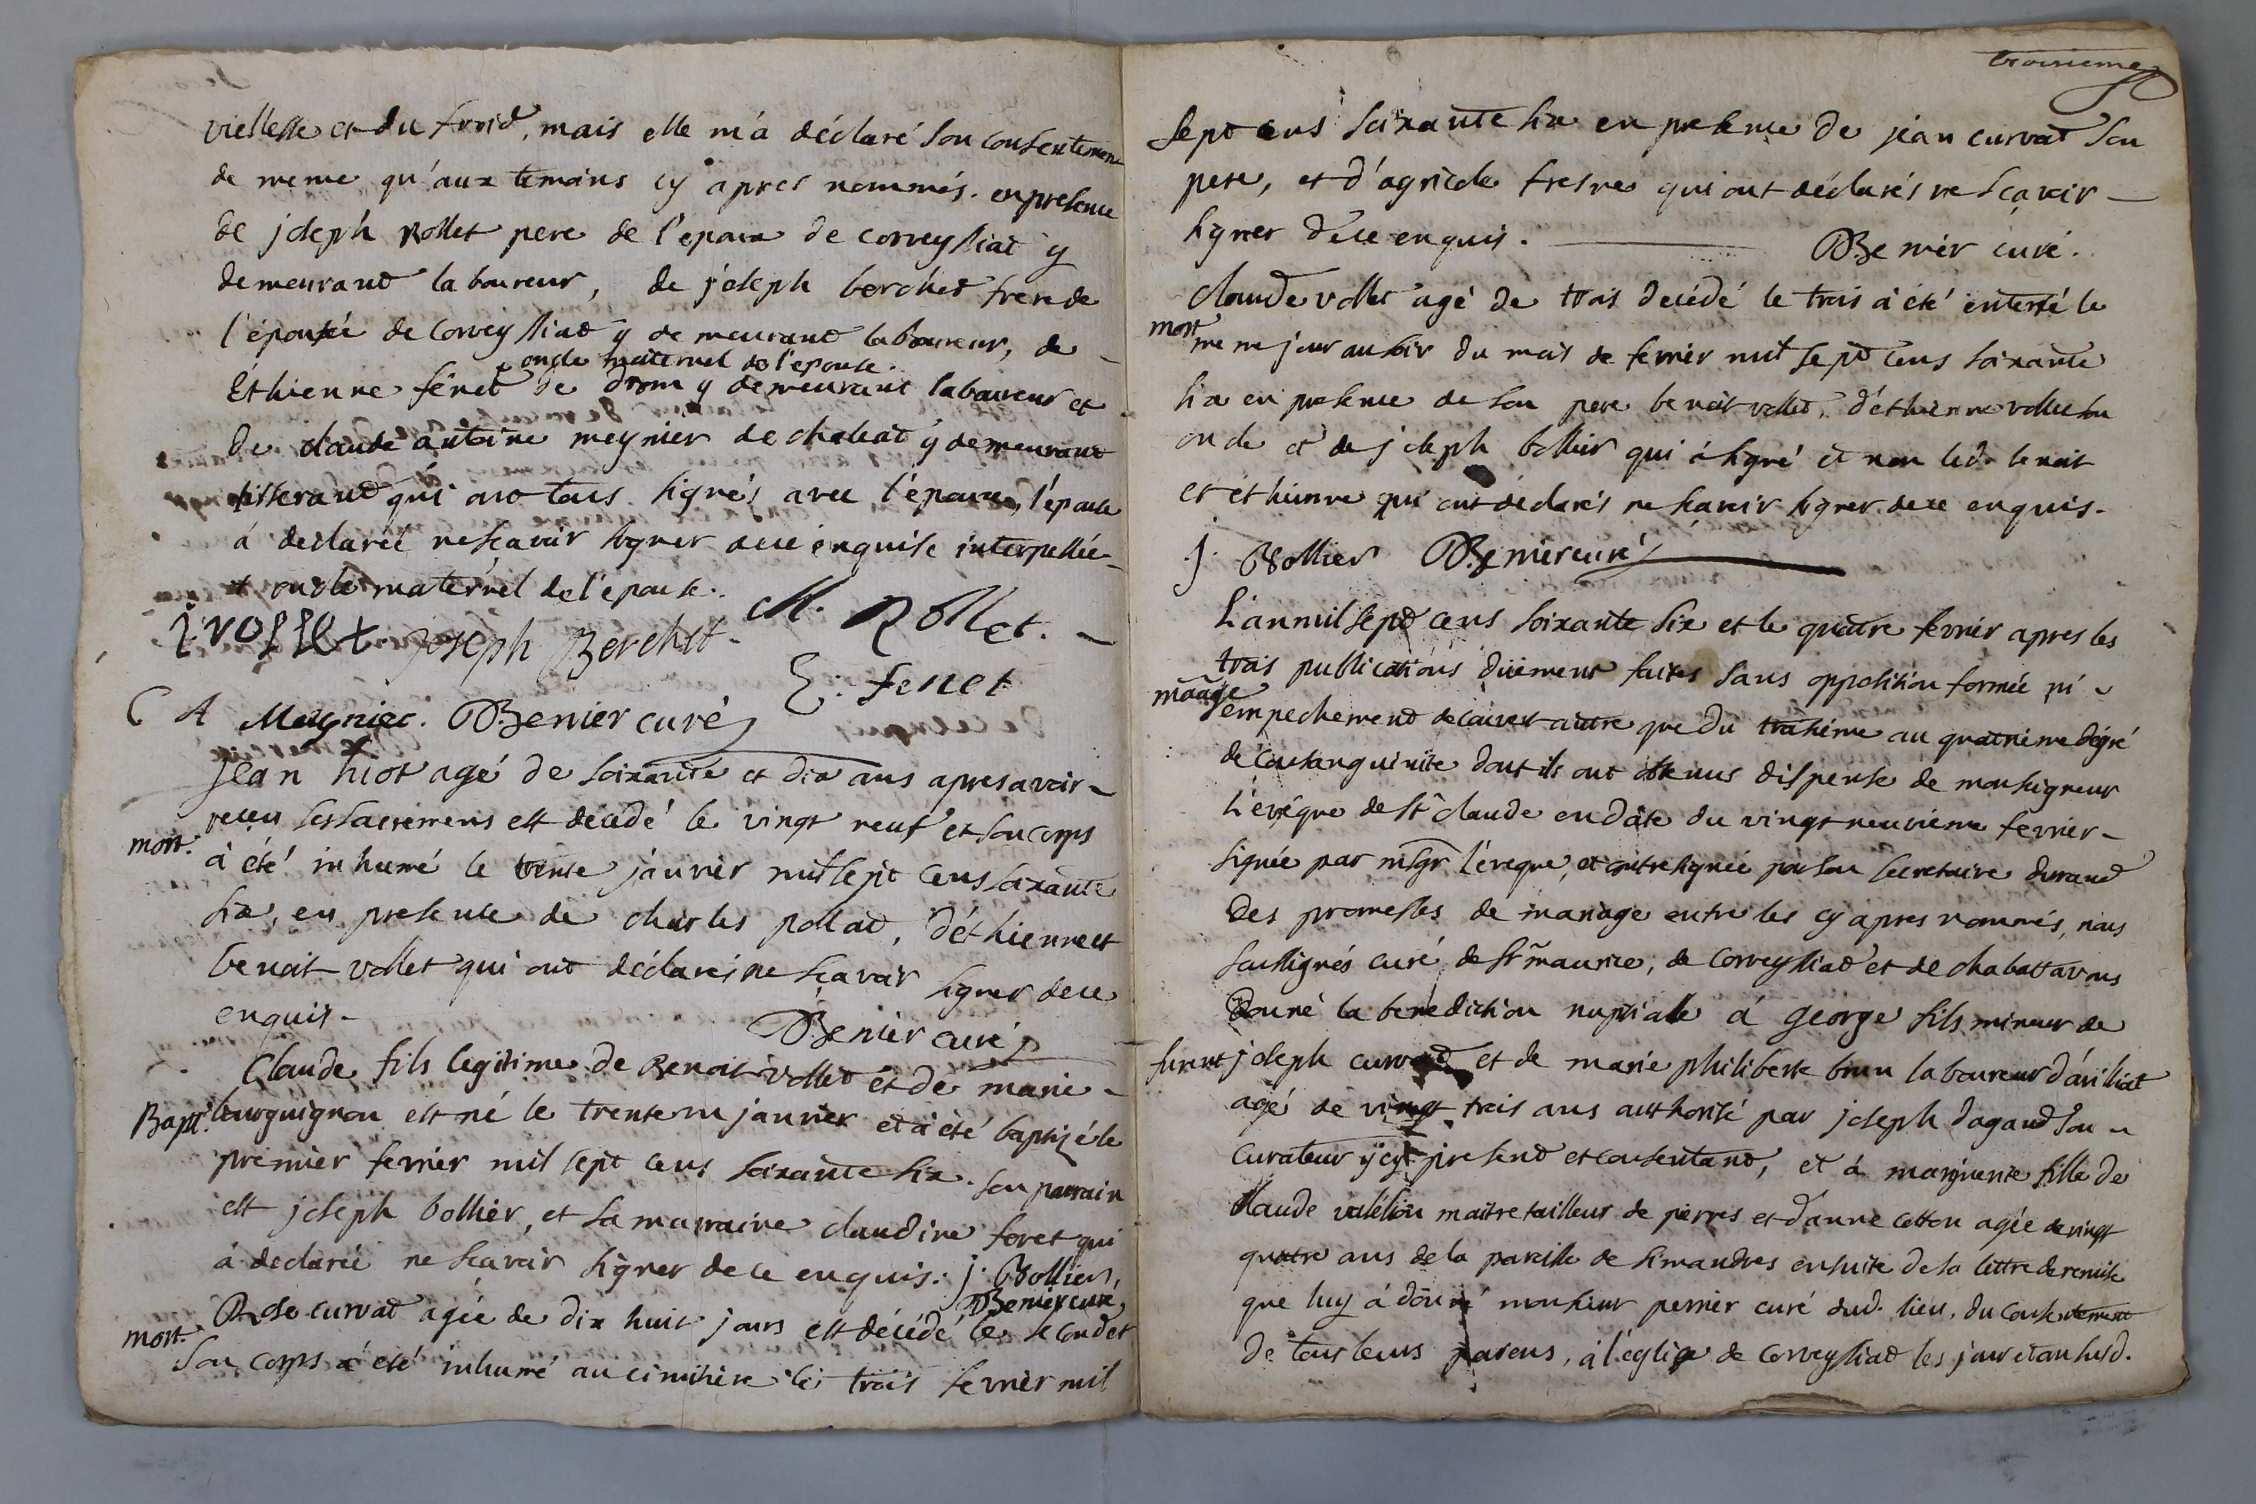 viellesse et du froid, mais elle m'a déclaré son consentement
de meme qu'aux temoins cy apres nommés. en presence
de joseph Rollet pere de l'epoux de corveyssiat y
demeurant laboureur, de joseph berchet frere de
l'épousée de Corveyssiat y demeurant laboureur, de
oncle maternel de l'epouse.
Ethienne fénet de drom y demeurant laboureur et
de claude antoine meynier de chaleat y demeurant
tisserand qui ont tous signés avec l'époux, l'épouse
à declarée ne sçavoir signer de ce enquise interpellée
+ oncle maternel de l'epouse.
j. rollet joseph Berchet. M. Rollet.
E. fenet
C A Meynier. Benier curé
jean hiot agé de soixante et dix ans apres avoir
reçeu ses sacremens est décédé le vingt neuf et son corps
mort.
à été inhumé le trente janvier mil sept cens soixante
six, en presence de charles pollat, d'éthienne et
benoit vollet qui ont déclarés ne sçavoir signer de ce
enquis.
Benier curé
Claude fils legitime de Benoit vollet et de marie
Bapt. bourguignon est né le trente un janvier et à été baptizé le
premier fevrier mil sept cens soixante six. son parrain
est joseph bollier, et sa marraine claudine foret qui
à declarée ne sçavoir signer de ce enquis. j. Bollier,
Benier curé
Rose curvat agée de dix huit jours est décédé le second et
mort.
son corps à été inhumé au cimitière le trois fevrier mil
troisieme
sept cens soixante six en presence de jean curvat son
pere, et d'agricole fresne qui ont déclarés ne sçavoir
signer de ce enquis. Benier curé.
Claude vollet agé de trois decédé le trois à été enterré le
mort
meme jour au soir du mois de fevrier mil sept cens soixante
six en presence de son pere benoit vollet, d'éthienne vollet son
oncle et de joseph bollier qui à signé et non led. benoit
et éthienne qui ont declarés ne sçavoir signer de ce enquis.
j. Bollier Benier curé
L'an mil sept cens soixante six et le quatre fevrier apres les
trois publications düement faites sans opposition formée ni
mãage
empechement decouvert autre que du troisieme au quatrieme dégré
de consanguinité dont ils ont obtenus dispense de monseigneur
L'évêque de St claude en dâte du vingt neuvieme fevrier
signée par msgr l'éveque, et contresignée par son secretaire durand
Des promesses de mariage entre les cy apres nommés, nous
soussignés curé de St maurice, de Corveyssiat et de chabattavons
Donné la benediction nuptiale à george fils mineur de
furent joseph curvat et de marie philiberte brun laboureur d'arisiat
agé de vingt trois ans authorisé par joseph dagaud son
curateur ÿcy present et consentant, et à marguerite fille de
claude valélion maitre tailleur de pierres et d'anne cotton agée de vingt
quatre ans de la paroisse de simandres ensuite de la lettre de remise
que luy à donné monsieur perrier curé dud. lieu, du consentement
de tous leurs parens, à l'église de corveyssiat les jour et an susd.